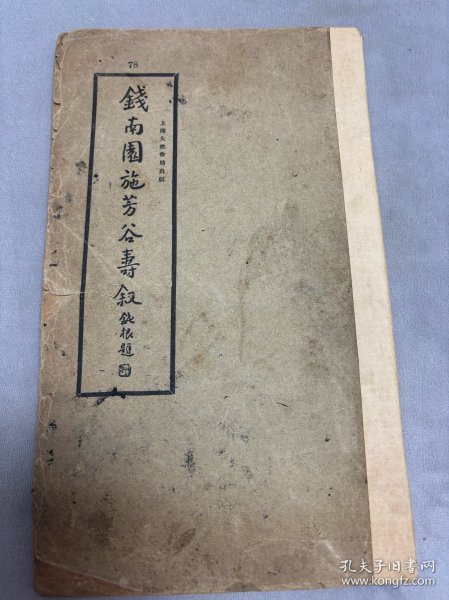 78
錢南園施芳谷壽叙
鈍根題
上海大衆書局出版
孔夫子旧书网
www.kongfz.com